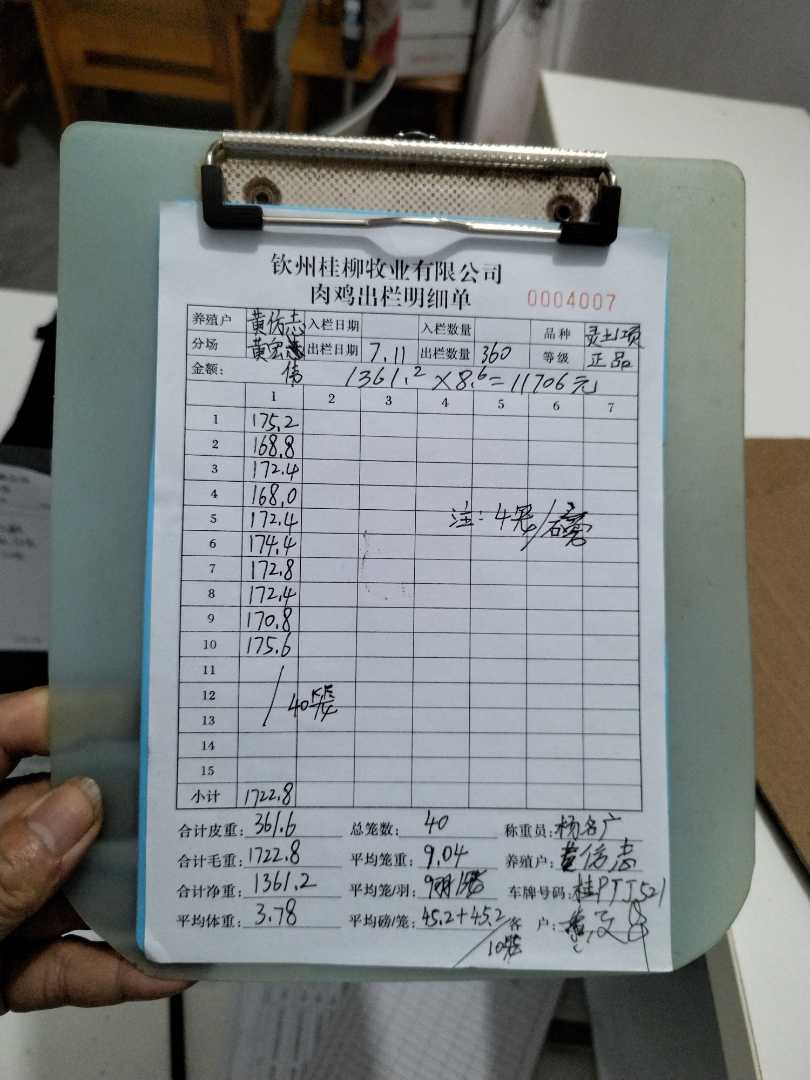 钦州桂柳牧业有限公司
肉鸡出栏明细单 0004007
养殖户 黄伤志 入栏日期 入栏数量 品种 灵土项
分场 黄宏伟 出栏日期 7.11 出栏数量 360 等级 正品
金额: 1361.2×8.6=11706元
1 2 3 4 5 6 7
1 175.2
2 168.8
3 172.4
4 168.0
5 172.4 注:4笼/磅
6 174.4
7 172.8
8 172.4
9 170.8
10 175.6
11
12 / 40笼
13
14
15
小计 1722.8
合计皮重: 361.6 总笼数: 40 称重员: 杨名广
合计毛重: 1722.8 平均笼重: 9.04 养殖户:
合计净重: 1361.2 平均笼/羽: 9羽/笼 车牌号码: 桂PTJ521
平均体重: 3.78 平均磅/笼: 45.2+45.2 客户:
/10笼